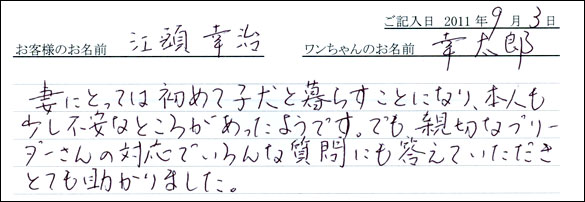 ご記入日 2011年9月3日
お客様のお名前 江頭 幸治 ワンちゃんのお名前 幸太郎
妻にとっては初めて子犬と暮らすことになり、本人も
少し不安なところがあったようです。でも、親切なブリー
ダーさんの対応でいろんな質問にも答えていただき
とても助かりました。